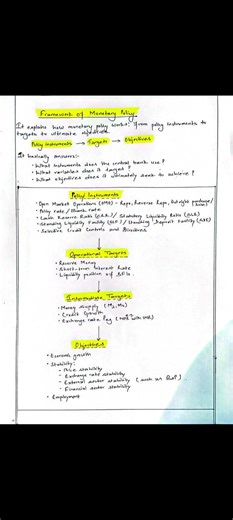 Framework of Monetary Policy
It explains how monetary policy works: from policy instruments to
targets to ultimate objectives.
Policy Instruments → Targets → Objectives
It basically answers:
• What instruments does the central bank use?
• What variables does it target?
• What objectives does it ultimately seek to achieve?
Policy Instruments
• Open Market Operations (OMO) - Repo, Reverse Repo, Outright purchase/
• Policy rate / Bank rate
• Cash Reserve Ratio (CRR) / Statutory Liquidity Ratio (SLR)
• Standing Liquidity Facility (SLF) / Standing Deposit Facility (SDF)
• Selective Credit Controls and Directives
Operational Targets
• Reserve Money
• Short-term Interest Rate
• Liquidity position of BFIs.
Intermediate Targets
• Money supply
• Credit Growth
• Exchange rate Peg (NPR with INR)
Objectives
• Economic growth
• Stability:
• Price stability
• Exchange rate stability
• External sector stability (such as BoP)
• Financial sector stability
• Employment